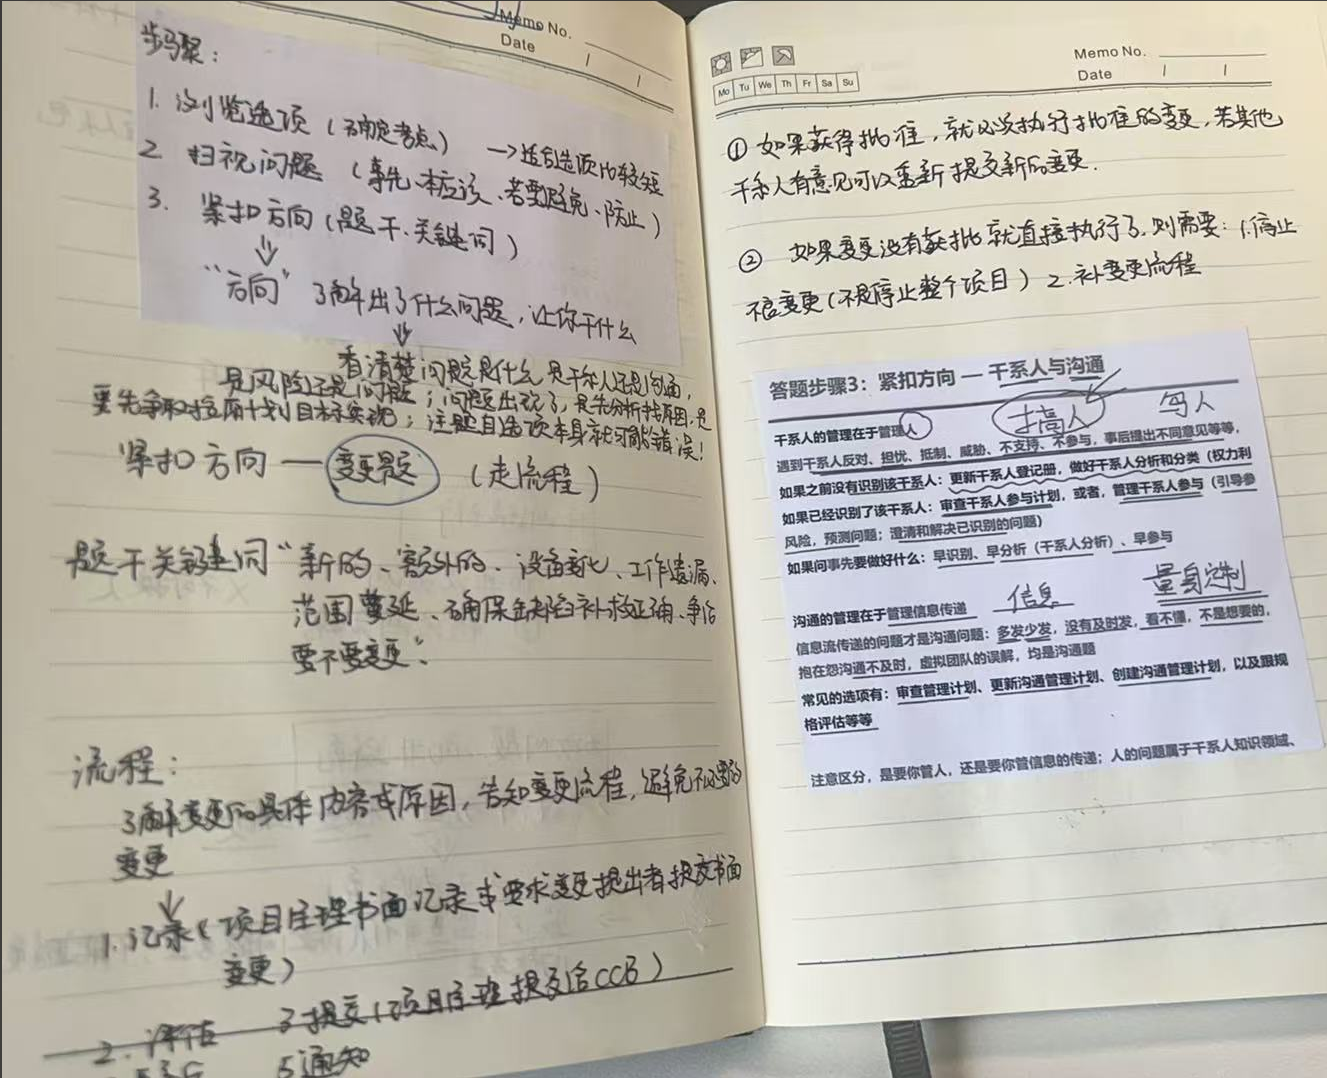 Memo No.
Date
步骤：
1. 浏览选项（确定考点） → 适合选项比较短
2 扫视问题（事先、本应该、若要避免、防止）
3. 紧扣方向（题干、关键词）
"方向" 了解出了什么问题，让你干什么
看清楚问题是什么 是干系人还是沟通，
是风险还是问题；问题出现了，是先分析找原因，是
要先争取按原计划目标实现；注题目选项本身就可能错误！
紧扣方向 — 变更题 （走流程）
题干关键词"新的、额外的、设备变化、工作遗漏、
范围蔓延、确保缺陷补救正确、争论
要不要变更"．
流程：
了解变更的具体内容或原因，告知变更流程，避免不必要的
变更
1. 记录（项目经理书面记录或要求变更提出者提交书面
变更）
2. 评估 3 提交（项目经理提交给CCB）
5 通知
Memo No.
Date
Mo Tu We Th Fr Sa Su
① 如果获得批准，就必须执行批准的变更，若其他
干系人有意见可以重新提交新的变更．
② 如果变更没有获批就直接执行了，则需要：1.停止
变更（不是停止整个项目）2.补变更流程
答题步骤3：紧扣方向 — 干系人与沟通
搞人
干系人的管理在于管理人
遇到干系人反对、担忧、抵制、威胁、不支持、不参与，事后提出不同意见等等，
如果之前没有识别该干系人：更新干系人登记册，做好干系人分析和分类（权力利
如果已经识别了该干系人：审查干系人参与计划，或者，管理干系人参与（引导参
风险，预测问题；澄清和解决已识别的问题）
如果问事先要做好什么：早识别、早分析（干系人分析）、早参与
信息 量身定制
沟通的管理在于管理信息传递
信息流传递的问题才是沟通问题：多发少发，没有及时发，看不懂，不是想要的，
抱在怨沟通不及时，虚拟团队的误解，均是沟通题
常见的选项有：审查管理计划、更新沟通管理计划、创建沟通管理计划，以及跟规
格评估等等
注意区分，是要你管人，还是要你管信息的传递；人的问题属于干系人知识领域、